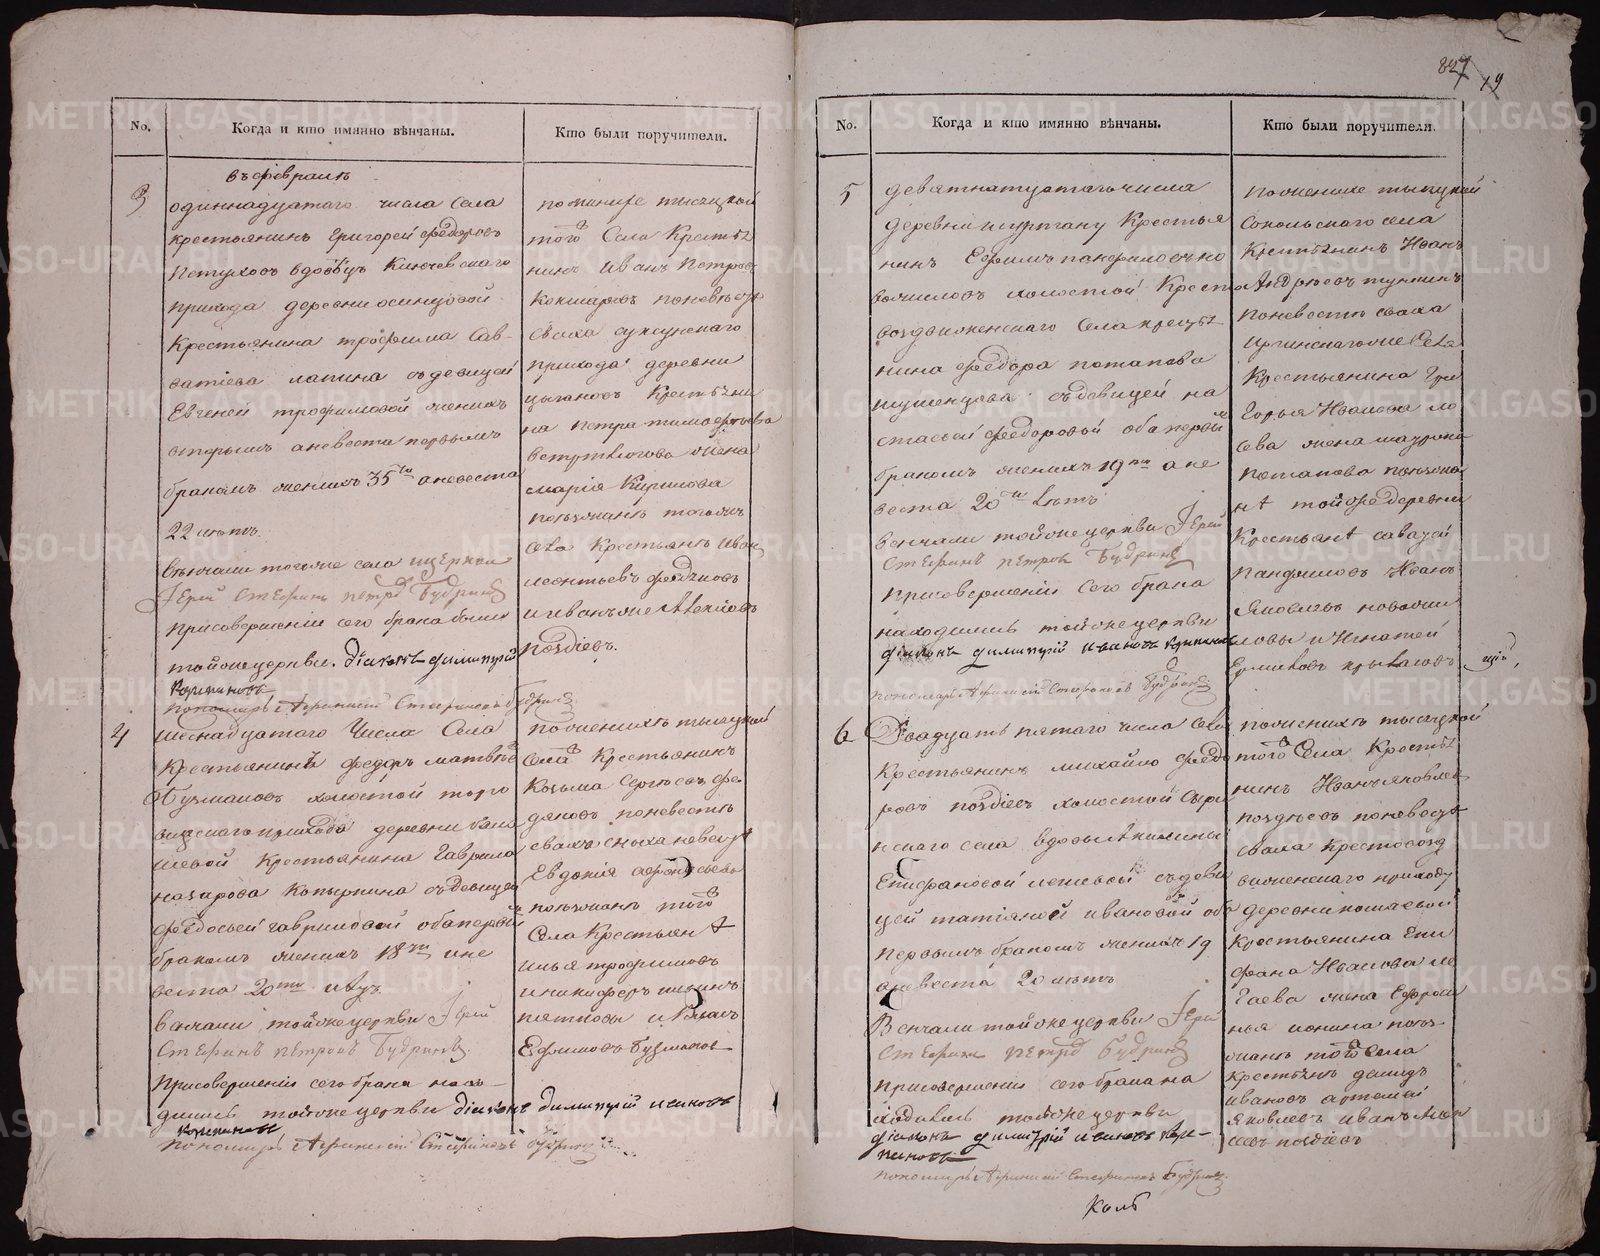 827 19
No.
Когда и кто имянно вѣнчаны.
Кто были поручители.
въ февралѣ
3
одиннадцатаго числа села
крестьянинъ Григорей Федоровъ
Петуховъ вдовецъ Ключевскаго
прихода деревни осинцовой
Крестьянина трофима Сав-
ватіева лапина съ девицей
Евгеніей трофимовой женихъ
вторымъ а невеста первымъ
бракомъ жених 35 ти а невеста
22 летъ.
Венчали тогоже села церкви
Іерей Стефанъ Петровъ Будринъ
при совершеніи сего брака были
тойже церкви. діаконъ димитрій
пономарь Афанасій Стефановъ Будринъ
по женихе тысяцкой
того Села Кресть
нинъ Иванъ Петровъ
Кокшаровъ по невесте
Сваха суксунскаго
прихода деревни
цыгановъ Крестьяни
на петра тимофеева
жена
марія Кирилова
поезжанъ тогожъ
села Крестьянъ Иван
леонтьевъ
и иванъ же Алексіевъ
поздѣевъ.
4
Шеснадцатаго Числа Села
Крестьянинъ федоръ матвѣевъ
Бузмаковъ холостой торго
вижскаго прихода деревни
шевой Крестьянина Гаврила
назарова Копытина съ девицей
федосьей гавриловой оба первы
бракомъ жених 18 ти а не
веста 20 ти летъ.
Венчали тойже церкви Іерей
Стефанъ Петровъ Будринъ.
При совершеніи сего брака нахо-
дились тойже церкви діаконъ димитрій ивановъ
пономарь Афанасій Стефановъ Будринъ
по женихе тысяцкой
Села Крестьянинъ
Козьма Сергѣевъ фе
дяковъ по невесте
Евдокія
поезжанъ того
Села Крестьян
илья трофимовъ
и никифоръ ильинъ
пятковы и Власъ
Ефимовъ Бузмаковъ
No.
Когда и кто имянно вѣнчаны.
Кто были поручители.
5
девятнатцатаго числа
деревни шуртану Крестья
нинъ Ефимъ панфиловъ но
вошиловъ холостой Кресто
воздвиженскаго Села кресть
нина федора потапова
шушенцова съ девицей на
стасьей федоровой оба первы
бракомъ женихъ 19 ти а не
веста 20 ти летъ
венчали тойже церкви Іерей
Стефанъ петровъ Будринъ
при совершеніи сего брака
находились тойже церкви
діаконъ димитрій ивановъ
пономарь Афанасій Стефановъ Будринъ
по женихе тысяцкой
Сокольскаго села
Крестьянинъ Иванъ
Андрѣевъ
по невесте сваха
Иргинскаго же Села
Крестьянина Гри
горья Иванова ло
сева жена матрона
Потапова поезжа
не тойже деревни
Крестьяне саватей
Панфиловъ Иванъ
Яковлевъ новоши
ловы и Игнатей
6
Двадцать пятаго числа Села
Крестьянинъ михайло федо
ровъ поздѣевъ холостой Сыри
нскаго села вдовы Акилины
Епифановой съ деви
цей татіяной ивановой оба
первымъ бракомъ жених 19
а невеста 20 летъ
Венчали тойже церкви Іерей
Стефанъ Петровъ Будринъ
при совершеніи сего брака на
ходились тойже церкви
діаконъ димитрій ивановъ
пономарь Афанасій Стефановъ Будринъ
по женихе тысяцкой
того Села Крестья
нинъ Иванъ яковлев
поздѣевъ по невесте
сваха Крестовозд
виженскаго приходу
деревни
Крестьянина Епи
фана Иванова ле
гаева жена Ефроси
нья ионина поез
жане того Села
Крестьянъ демидъ
ивановъ артемей
Яковлевъ иванъ
поздѣевъ